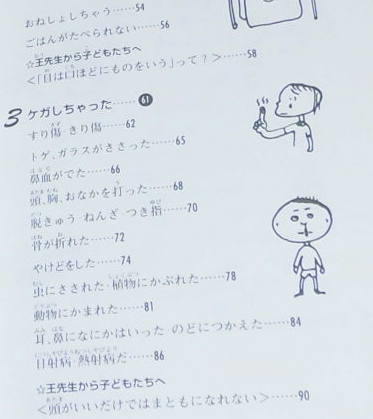 おねしょしちゃう……54
ごはんがたべられない……56
☆王先生から子どもたちへ
<「目は口ほどにものをいう」って？>……58
3 ケガしちゃった……61
すり傷・きり傷……62
トゲ、ガラスがささった……65
鼻血がでた……66
頭、胸、おなかを打った……68
脱きゅう・ねんざ・つき指……70
骨が折れた……72
やけどをした……74
虫にさされた・植物にかぶれた……78
動物にかまれた……81
耳、鼻になにかはいった・のどにつかえた……84
日射病・熱射病だ……86
☆王先生から子どもたちへ
<頭がいいだけではまともになれない>……90